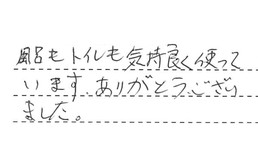 風呂もトイレも気持良く使って
います。ありがとうござい
ました。